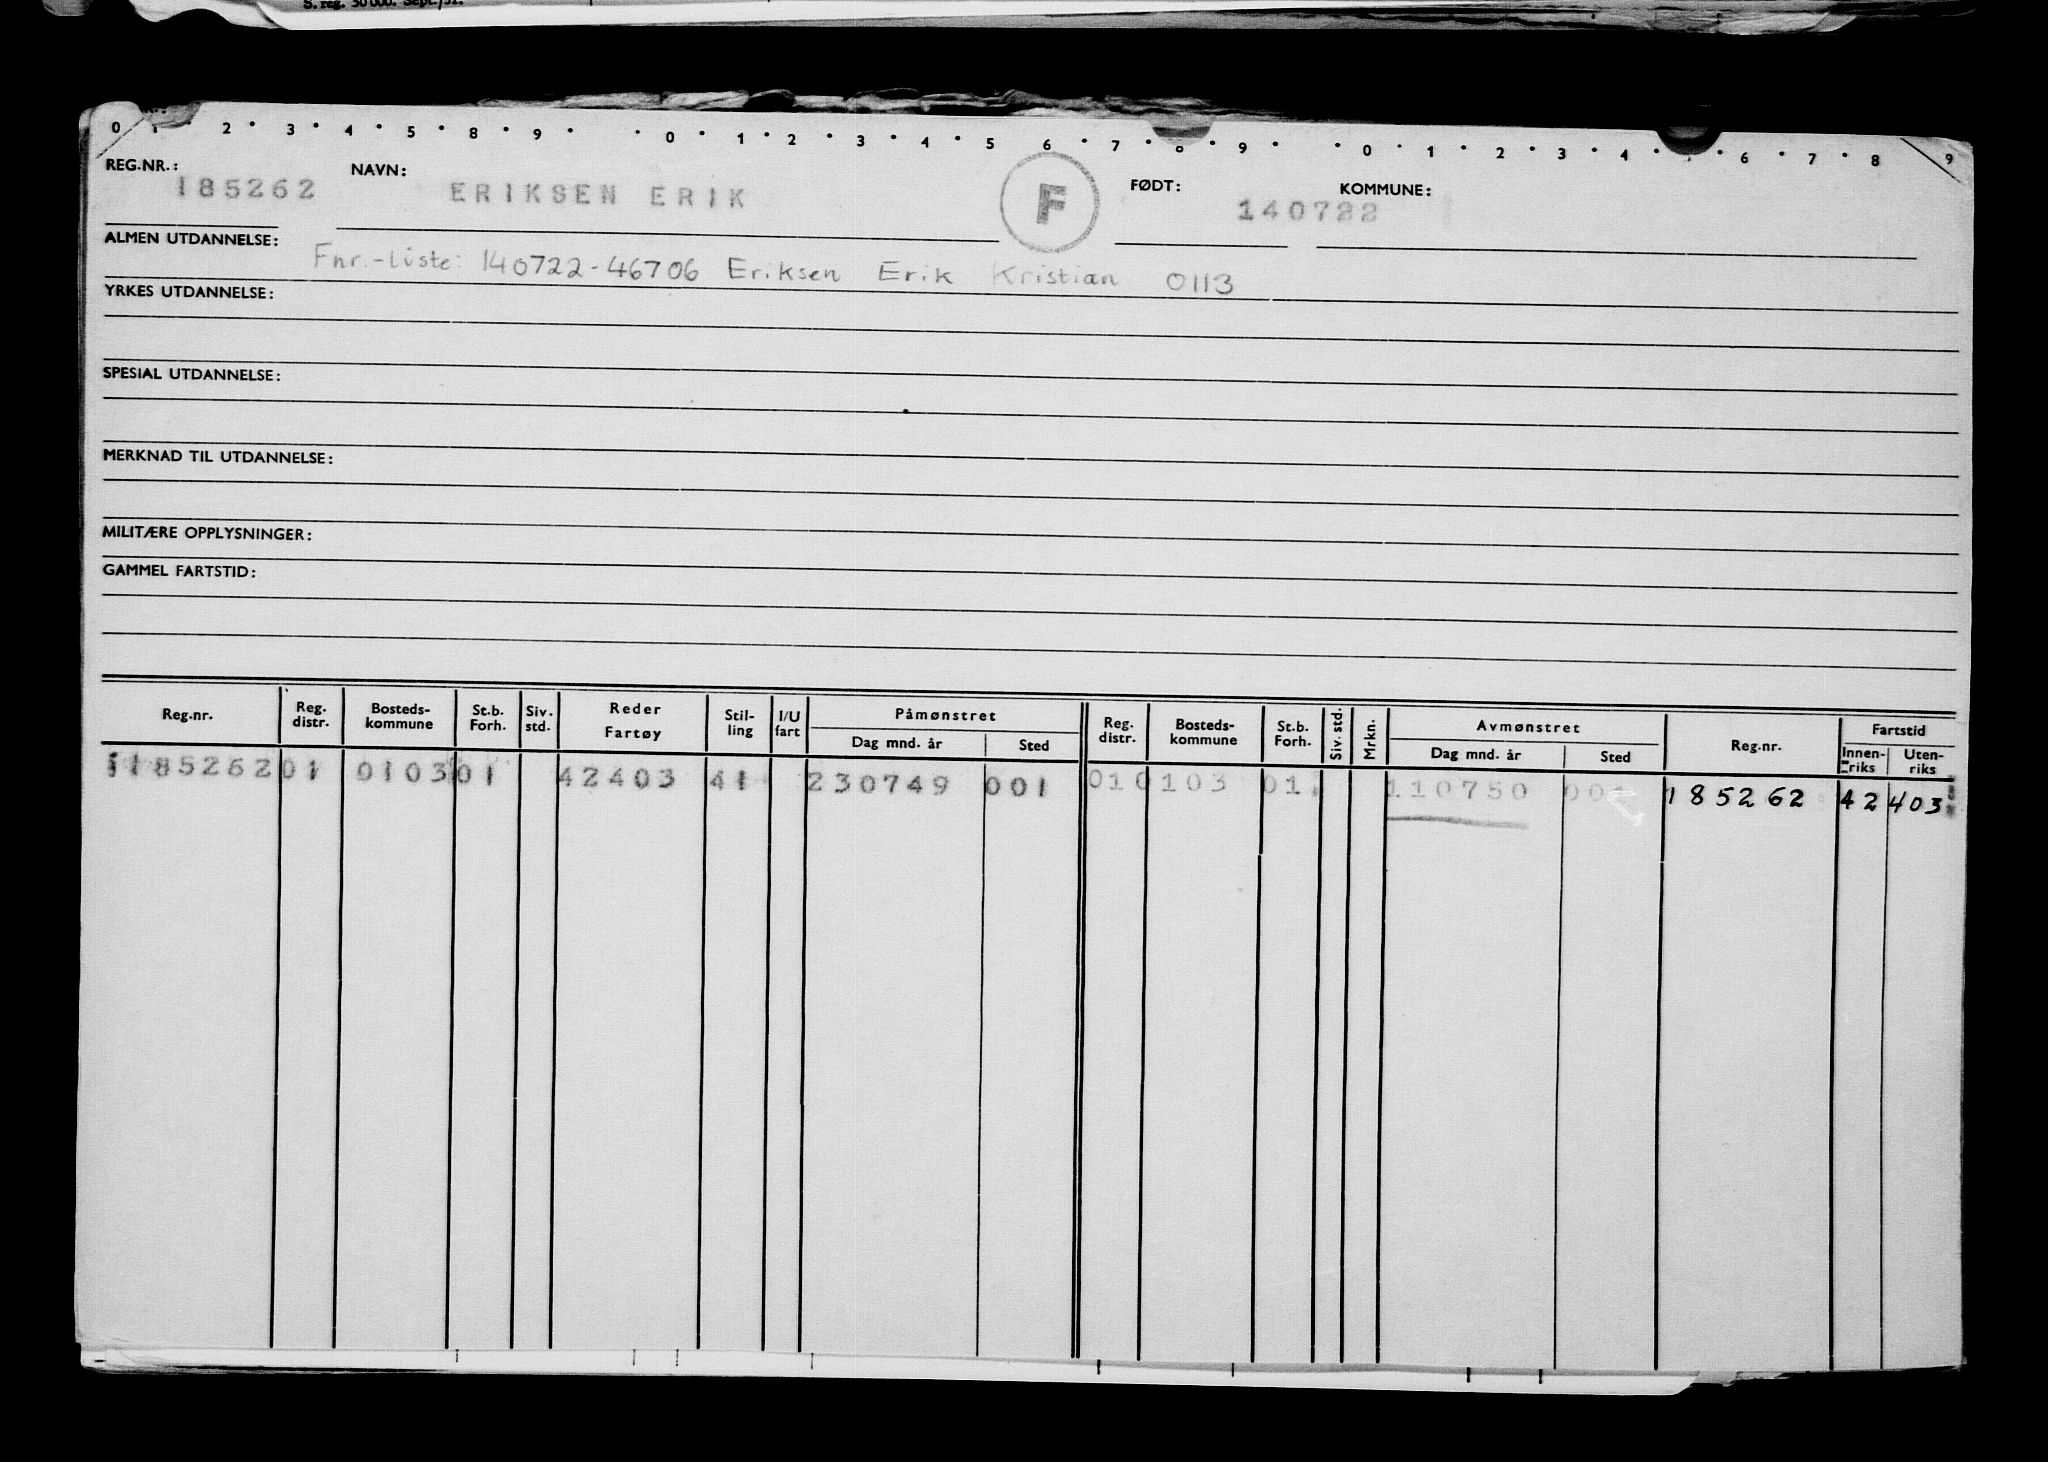 S. reg. 50 000. Sept./51.
0 1 2 3 4 5 8 9 0 1 2 3 4 5 6 7 8 9 0 1 2 3 4 6 7 8 9
REG.NR.: NAVN: FØDT: KOMMUNE:
185262 ERIKSEN ERIK F 140722
ALMEN UTDANNELSE:
Fnr.-liste: 140722-46706 Eriksen Erik Kristian 0113
YRKES UTDANNELSE:
SPESIAL UTDANNELSE:
MERKNAD TIL UTDANNELSE:
MILITÆRE OPPLYSNINGER:
GAMMEL FARTSTID:
Reg.nr. Reg. distr. Bosteds-kommune St.b. Forh. Siv. std. Reder Fartøy Stil-ling I/U fart Påmønstret Dag mnd. år Sted Reg. distr. Bosteds-kommune St.b. Forh. Siv. std. Mrkn. Avmønstret Dag mnd. år Sted Reg.nr. Fartstid Innen-riks Uten-riks
185262 01 0103 01 42403 41 230749 001 01 0103 01 110750 001 185262 42 403